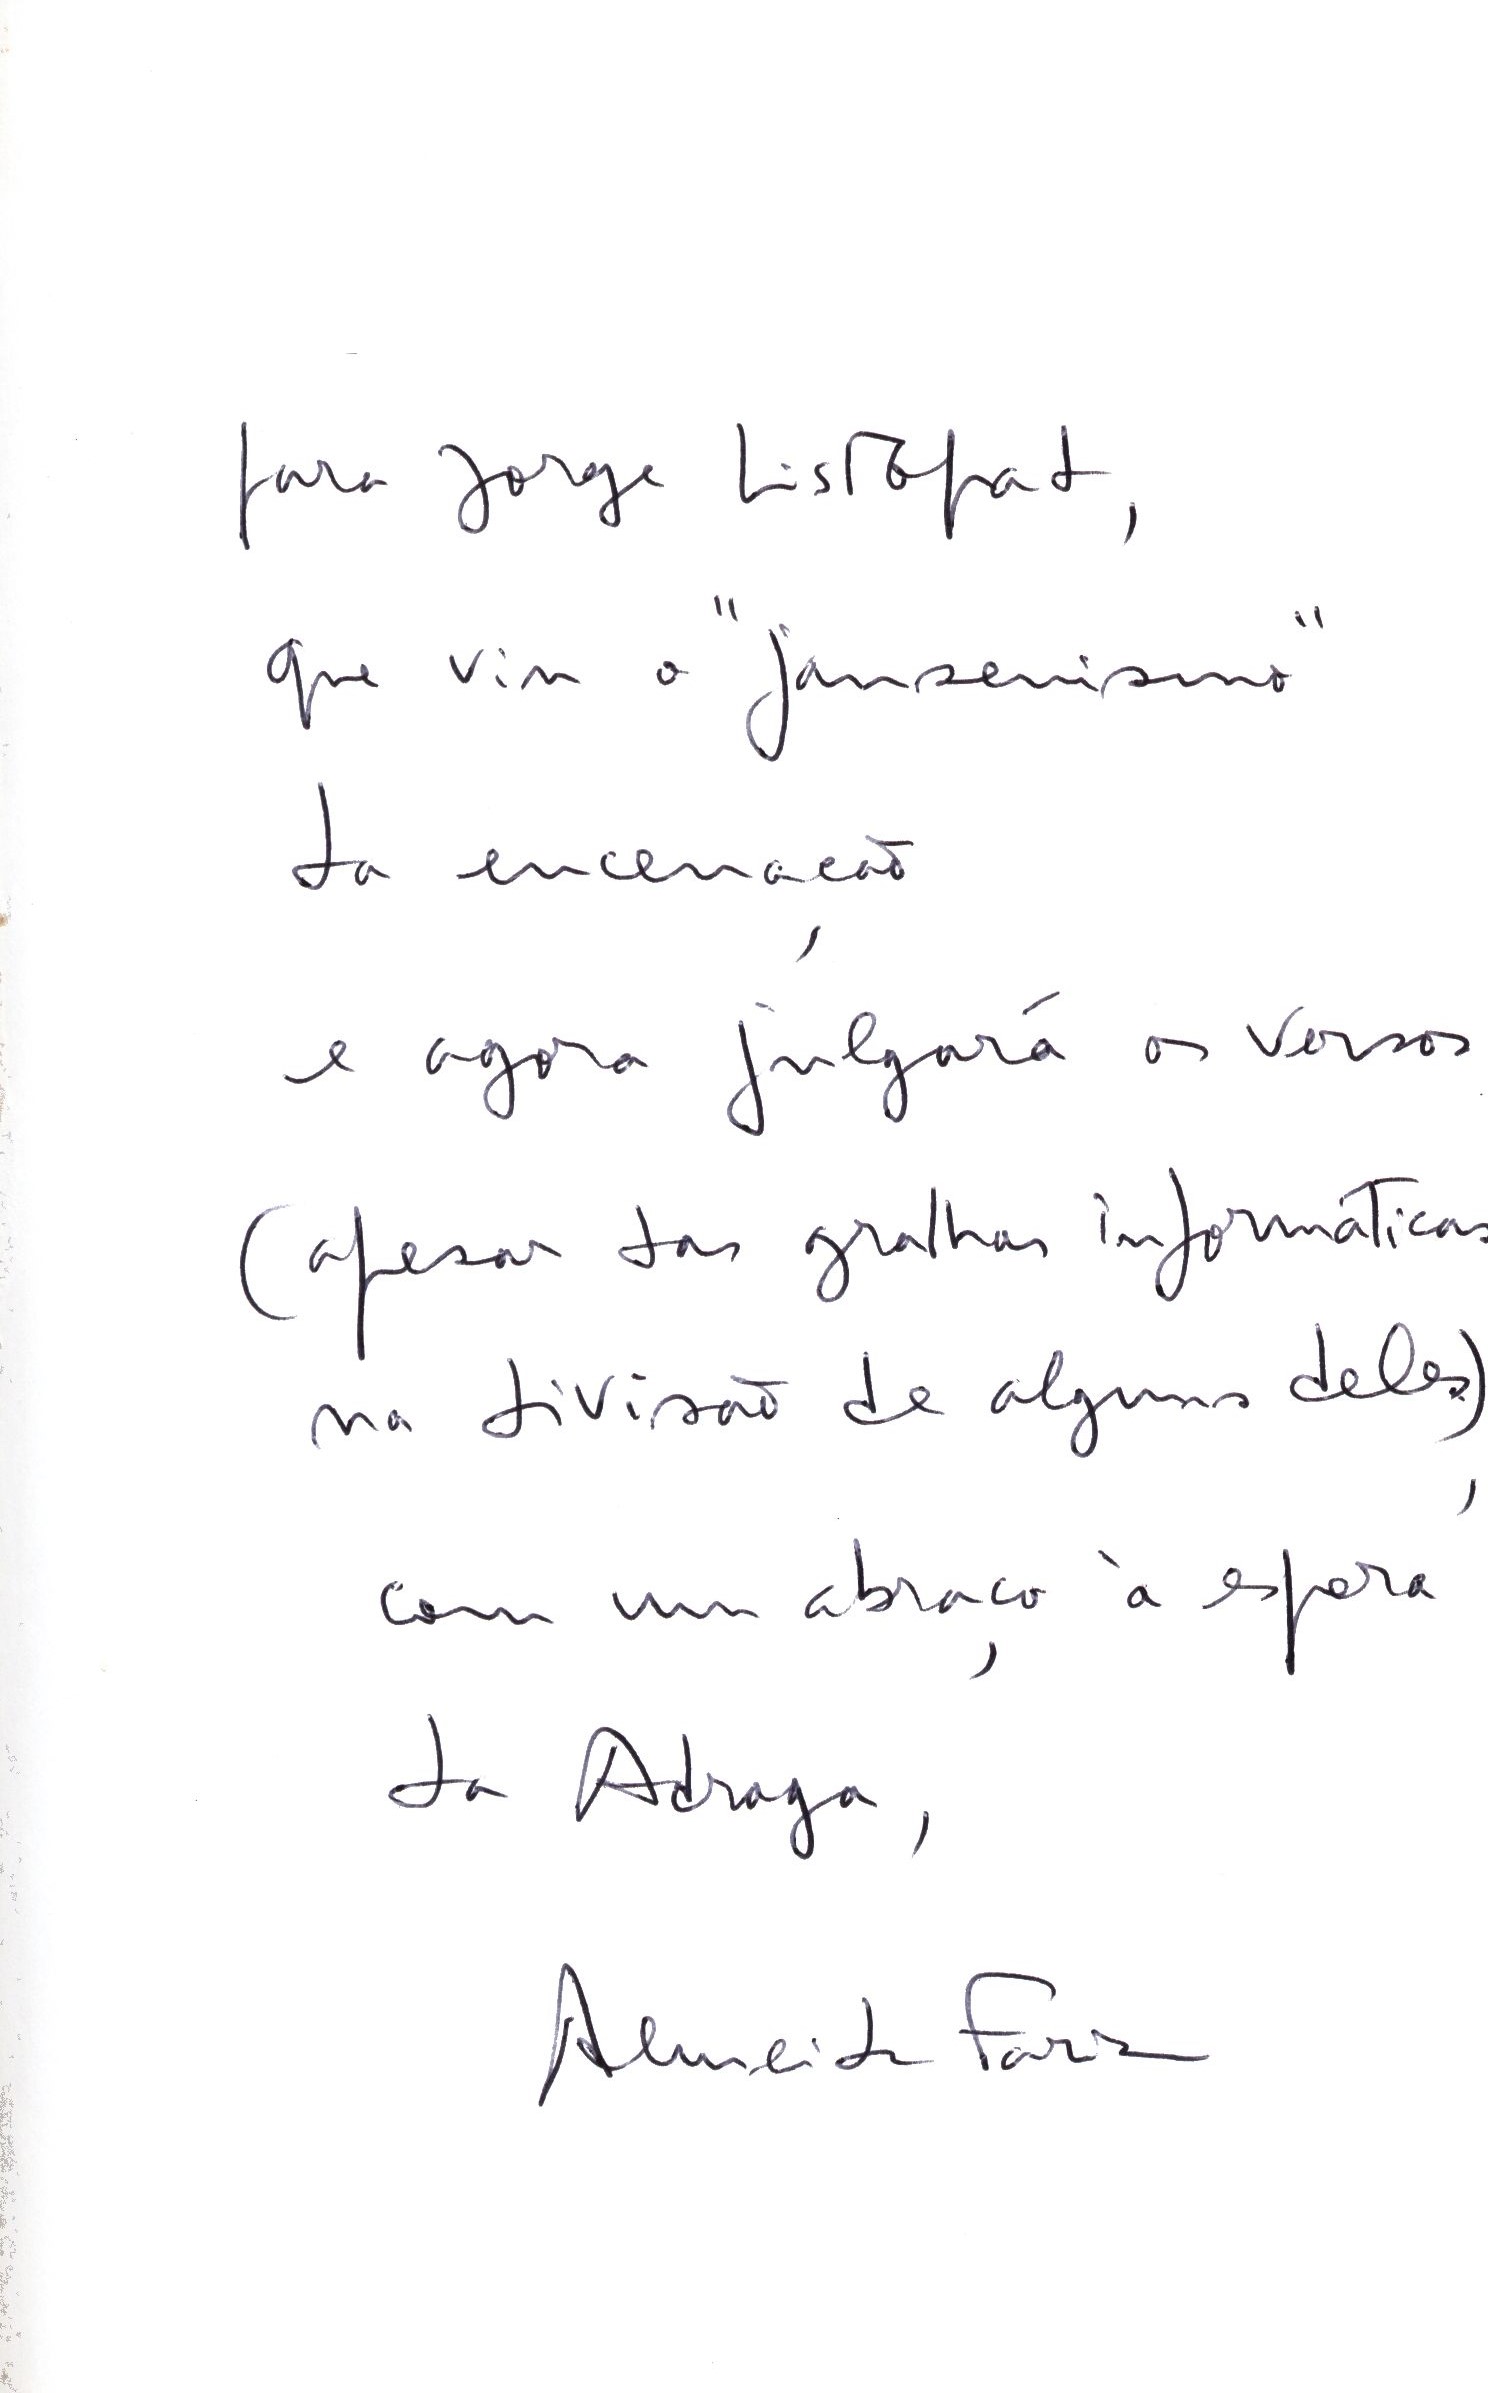 para Jorge Listopad,
que viu o "jansenismo"
da encenação
e agora julgará os versos
(apesar das gralhas informáticas
na divisão de alguns deles),
com um abraço à espera
da Adraga,
Almeida Faria